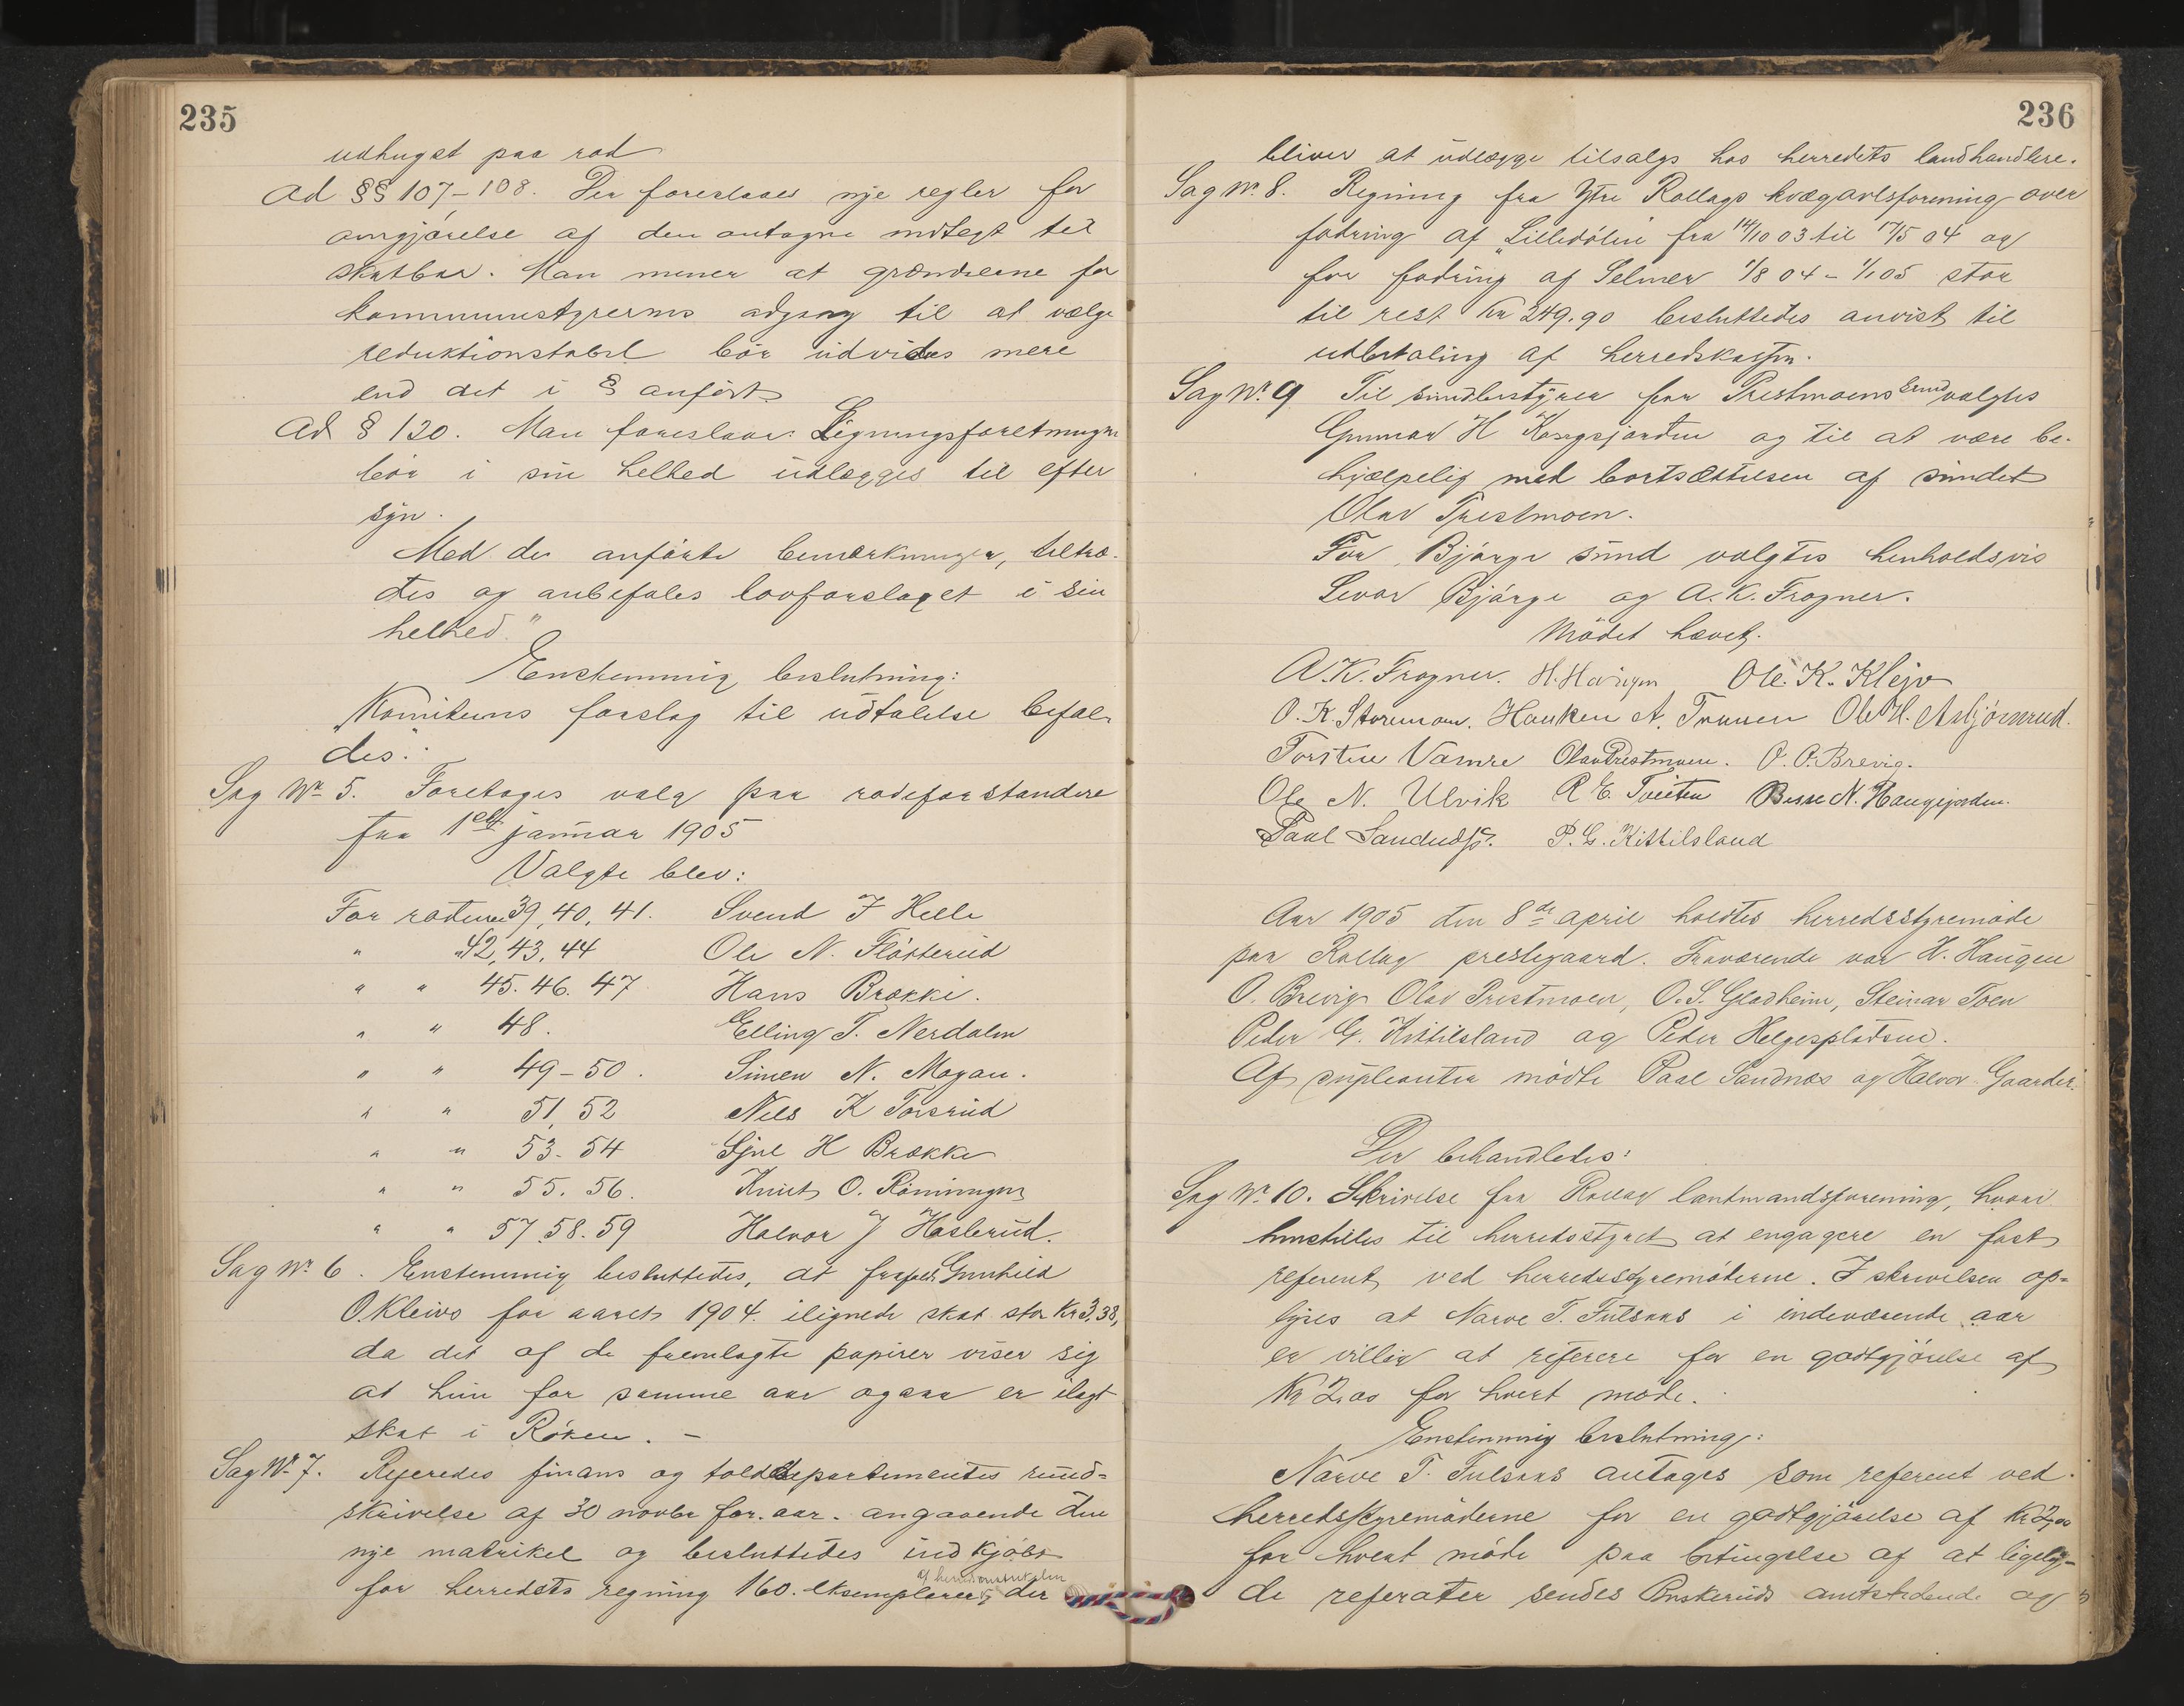 235
udhugst paa rod
Ad §§ 107-108. Der foreslaaes nye regler for
omgjørelse af den antagne indtegt til
skatbar. Man mener at grændserne for
kommunestyrernes adgang til at vælge
reduktionstabel bør udvides mere
end det i § anført
Ad § 120. Man foreslaar: Ligningsforetningen
bør i sin helhed udlægges til efter
syn.
Med de anførte bemærkninger, tiltræ-
des og anbefales lovforslaget i sin
helhed."
Enstemmig beslutning:
"Komiteens forslag til udtalelse befal-
des".
Sag Nr 5. Foretoges valg paa rodeforstandere
fra 1ste januar 1905
Valgte blev:
For roderne 39, 40, 41. Svend J Helle
" " 42, 43, 44 Ole N. Fløsterud
" " 45. 46. 47 Hans Brække.
" " 48. Elling T. Nerdalen
" " 49-50. Simen N. Mogan.
" " 51, 52 Nils K Torsrud
" " 53-54 Gjul H Brække
" " 55. 56. Knut O. Rønningen
" " 57. 58. 59 Halvor J Haslerud.
Sag Nr 6. Enstemmig besluttedes, at frafald Gunhild
O. Kleivs for aaret 1904 ilignede skat stor Kr 3,38,
da det af de fremlagte papirer viser sig
at hun for samme aar ogsaa er ilagt
skat i Røken. -
Sag Nr 7. Referedes finans og tolddepartementets rund-
skrivelse af 30 novbr for. aar. angaaende den
nye matrikel og besluttedes indkjøbt
for herredets regning 160. eksemplarer af herredsmatrikelen, der
236
bliver at udlægge tilsalgs hos herredets landhandlere.
Sag Nr. 8. Regning fra Ytre Rollags kvægavlsforening over
fodring af "Lilledølen" fra 14/10 03 til 17/5 04 og
for fodring af Selmer 1/8 04 - 1/1 05 stor
til rest Kr 249.90 besluttedes anvist til
udbetaling af herredskassen.
Sag Nr. 9 Til sundbestyrer for Prestmoens sund valgtes
Gunnar H Kongsjorden og til at være be-
hjælpelig med bortsættelsen af sundet
Olav Prestmoen.
For Bjørge sund valgtes henholdsvis
Sevar Bjørge og A. K. Frogner.
Mødet hævet.
A. K. Frogner. H. Haugen Ole. K. Klejv
O. K. Storemoen. Hauken A. Traaen Ole H. Asbjørnrud.
Torsten Vamre Olav Prestmoen. O. O. Brevig.
Ole N. Ulvik R E. Tveiten Besse N. Haugejorden.
Paal Sandnæs. P. G. Kittilsland
Aar 1905 den 8de april holdtes herredsstyremøde
paa Rollag prestegaard. Fraværende var H. Haugen
O. Brevig Olav Prestmoen, O. S. Gladheim, Steinar Toen
Peder G. Kittilsland og Peder Helgesplassen.
Af supleanter mødte Paal Sandnæs og Halvor Gaarder.
Der behandledes:
Sag Nr. 10. Skrivelse fra Rollag lantmandsforening, hvori
henstilles til herredsstyret at engagere en fast
referent ved herredsstyremøderne. I skrivelsen op-
lyses at Narve T. Fulsaas i indeværende aar
er villig at referere for en godtgjørelse af
Kr 2.00 for hvert møde.
Enstemmig beslutning:
Narve T. Fulsaas antages som referent ved
herredsstyremøderne for en godtgjørelse af Kr 2,00
for hvert møde paa betingelse af at ligely-
de referater sendes Buskeruds amtstidende og